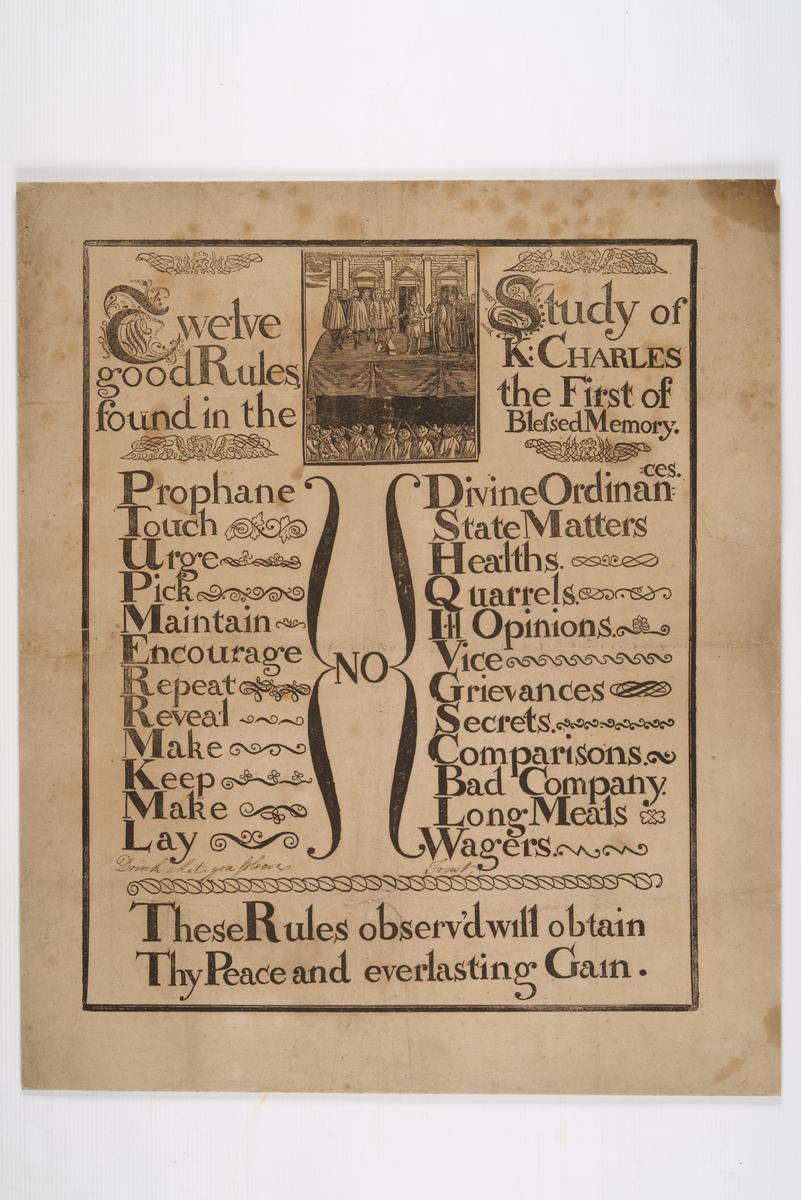 Twelve
good Rules,
found in the
Study of
K: CHARLES
the First of
Bleſsed Memory.
Prophane
Touch
Urge
Pick
Maintain
Encourage
Repeat
Reveal
Make
Keep
Make
Lay
NO
:ces.
Divine Ordinan:
State Matters
Healths.
Quarrels.
Ill Opinions.
Vice
Grievances
Secrets.
Comparisons.
Bad Company.
Long Meals
Wagers.
Drink what you please
These Rules observ'd will obtain
Thy Peace and everlasting Gain.